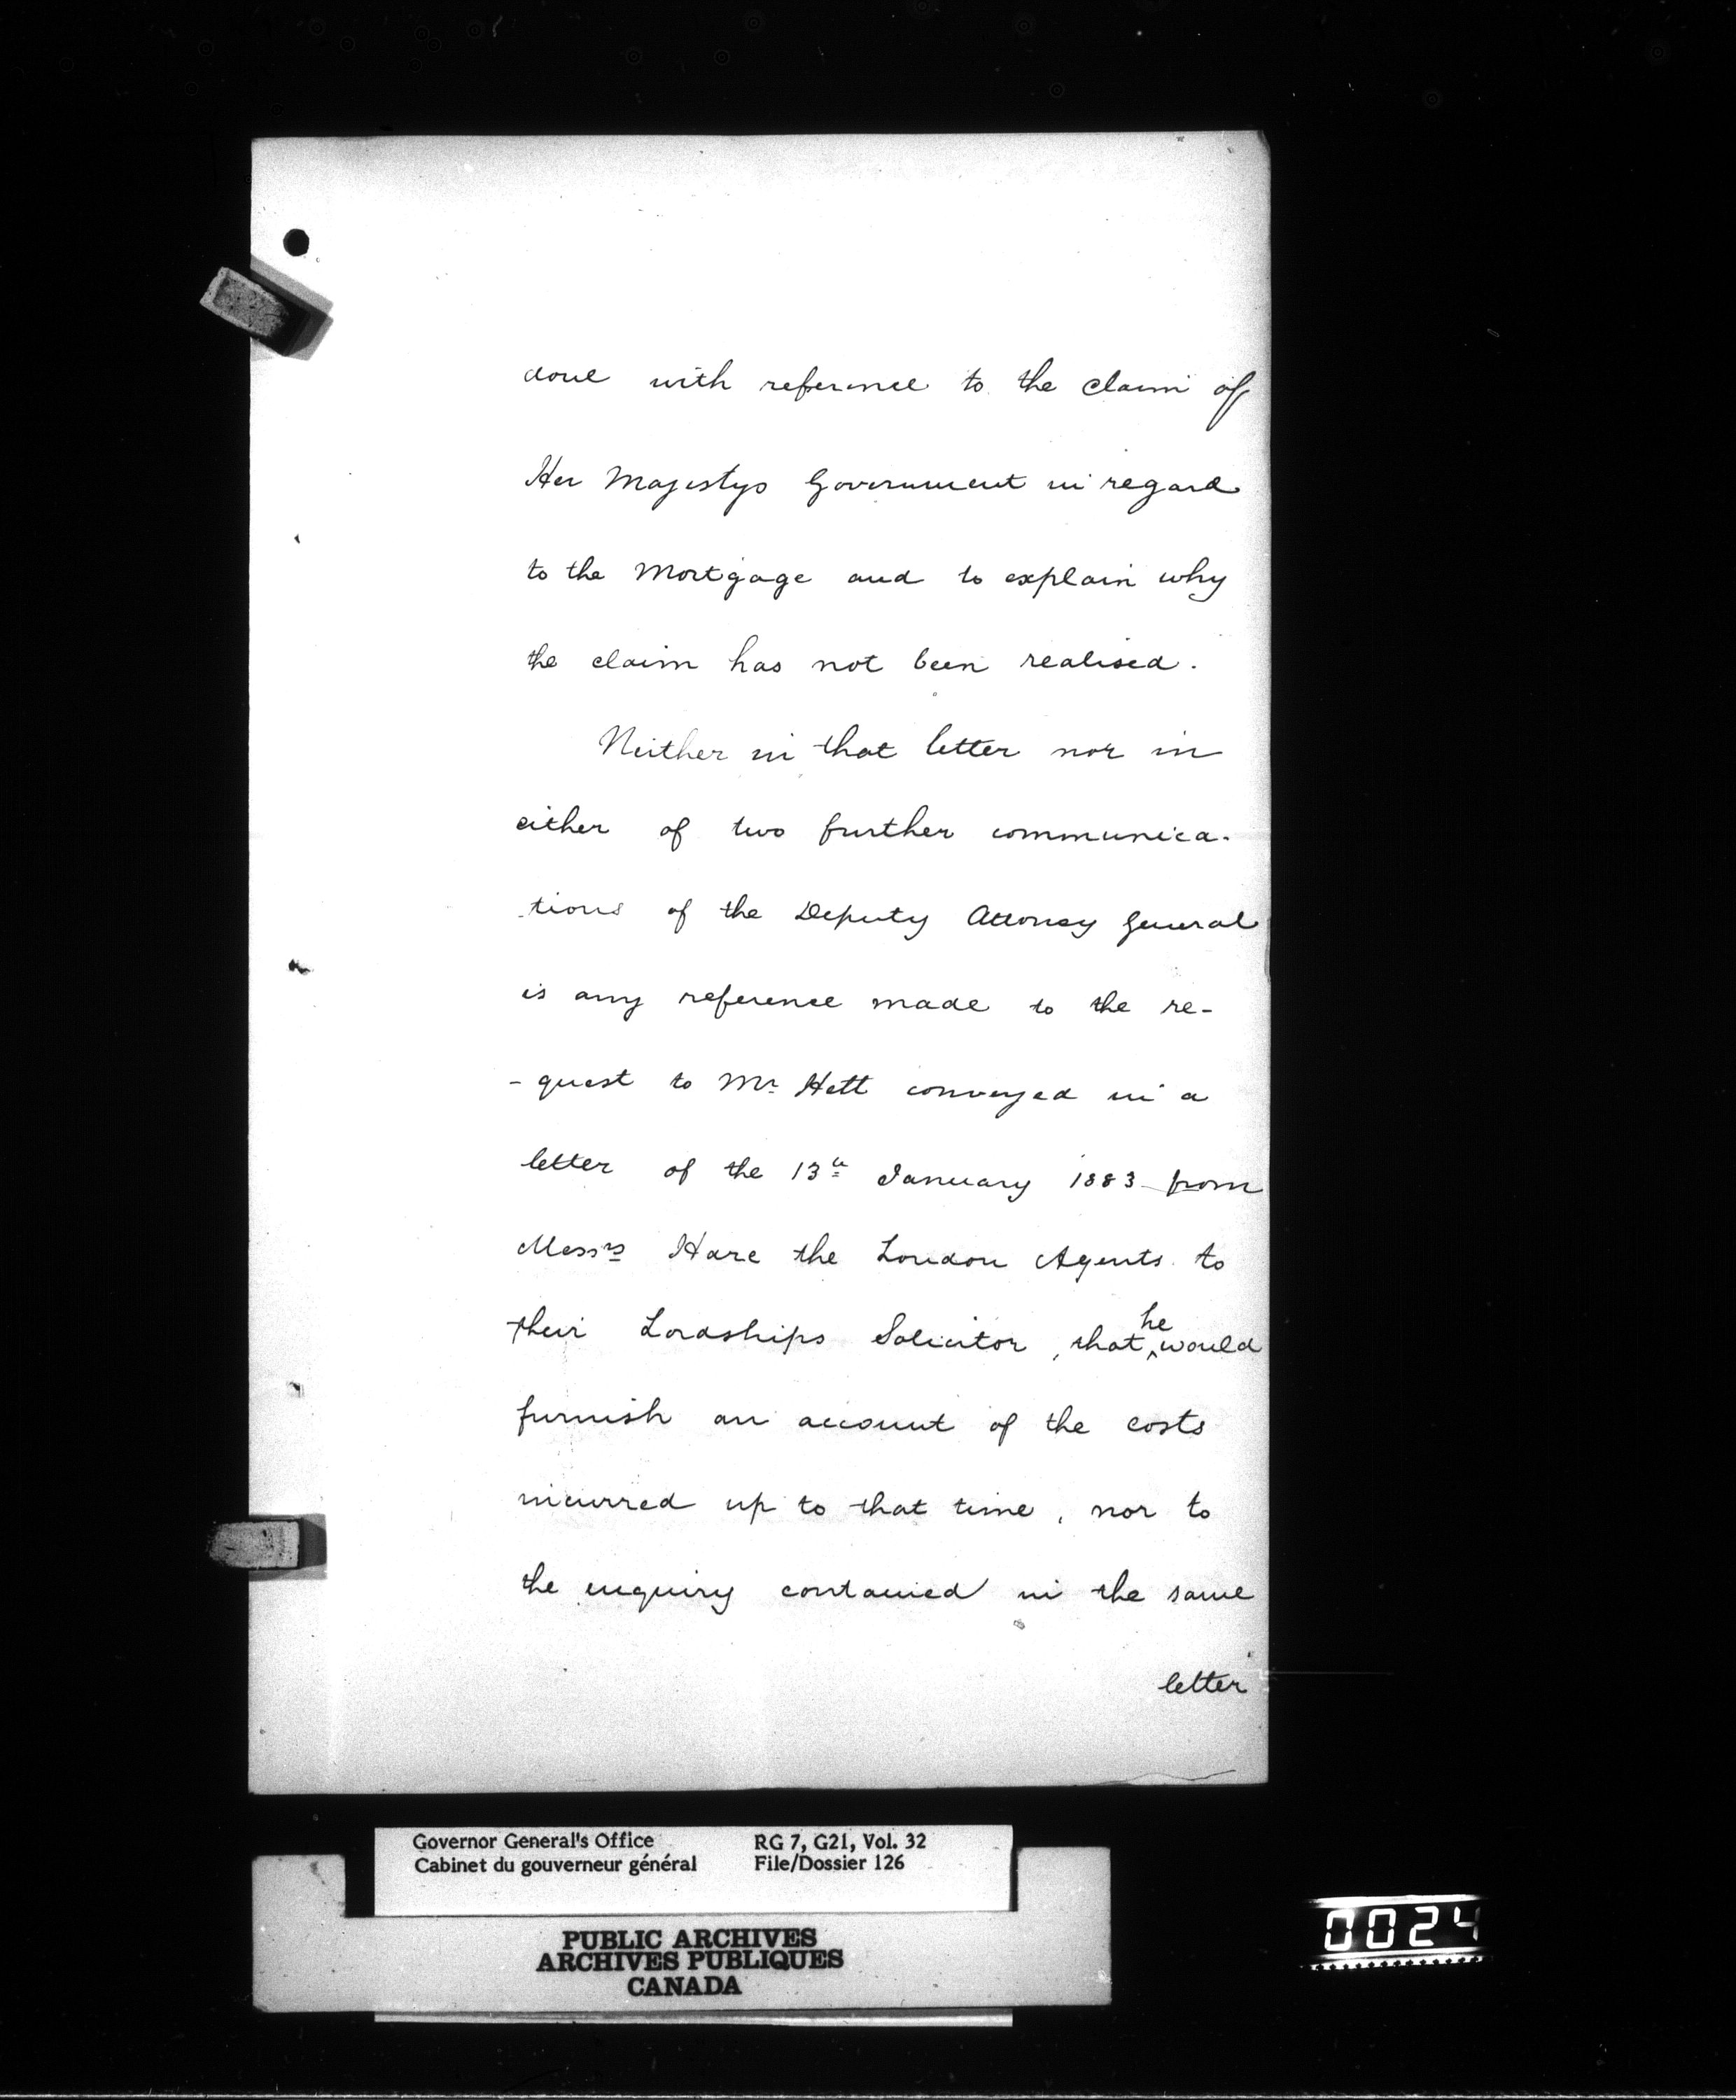 done with reference to the claim of
Her Majestys Government in regard
to the Mortgage and to explain why
the claim has not been realised.
Neither in that letter nor in
either of two further communica-
-tions of the Deputy Attorney General
is any reference made to the re-
-quest to Mr Hett conveyed in a
letter of the 13th January 1883 from
Messrs Hare the London Agents to
their Lordships Solicitor, that he would
furnish an account of the costs
incurred up to that time, nor to
the enquiry contained in the same
letter
Governor General's Office RG 7, G21, Vol. 32
Cabinet du gouverneur général File/Dossier 126
PUBLIC ARCHIVES
ARCHIVES PUBLIQUES
CANADA
0024